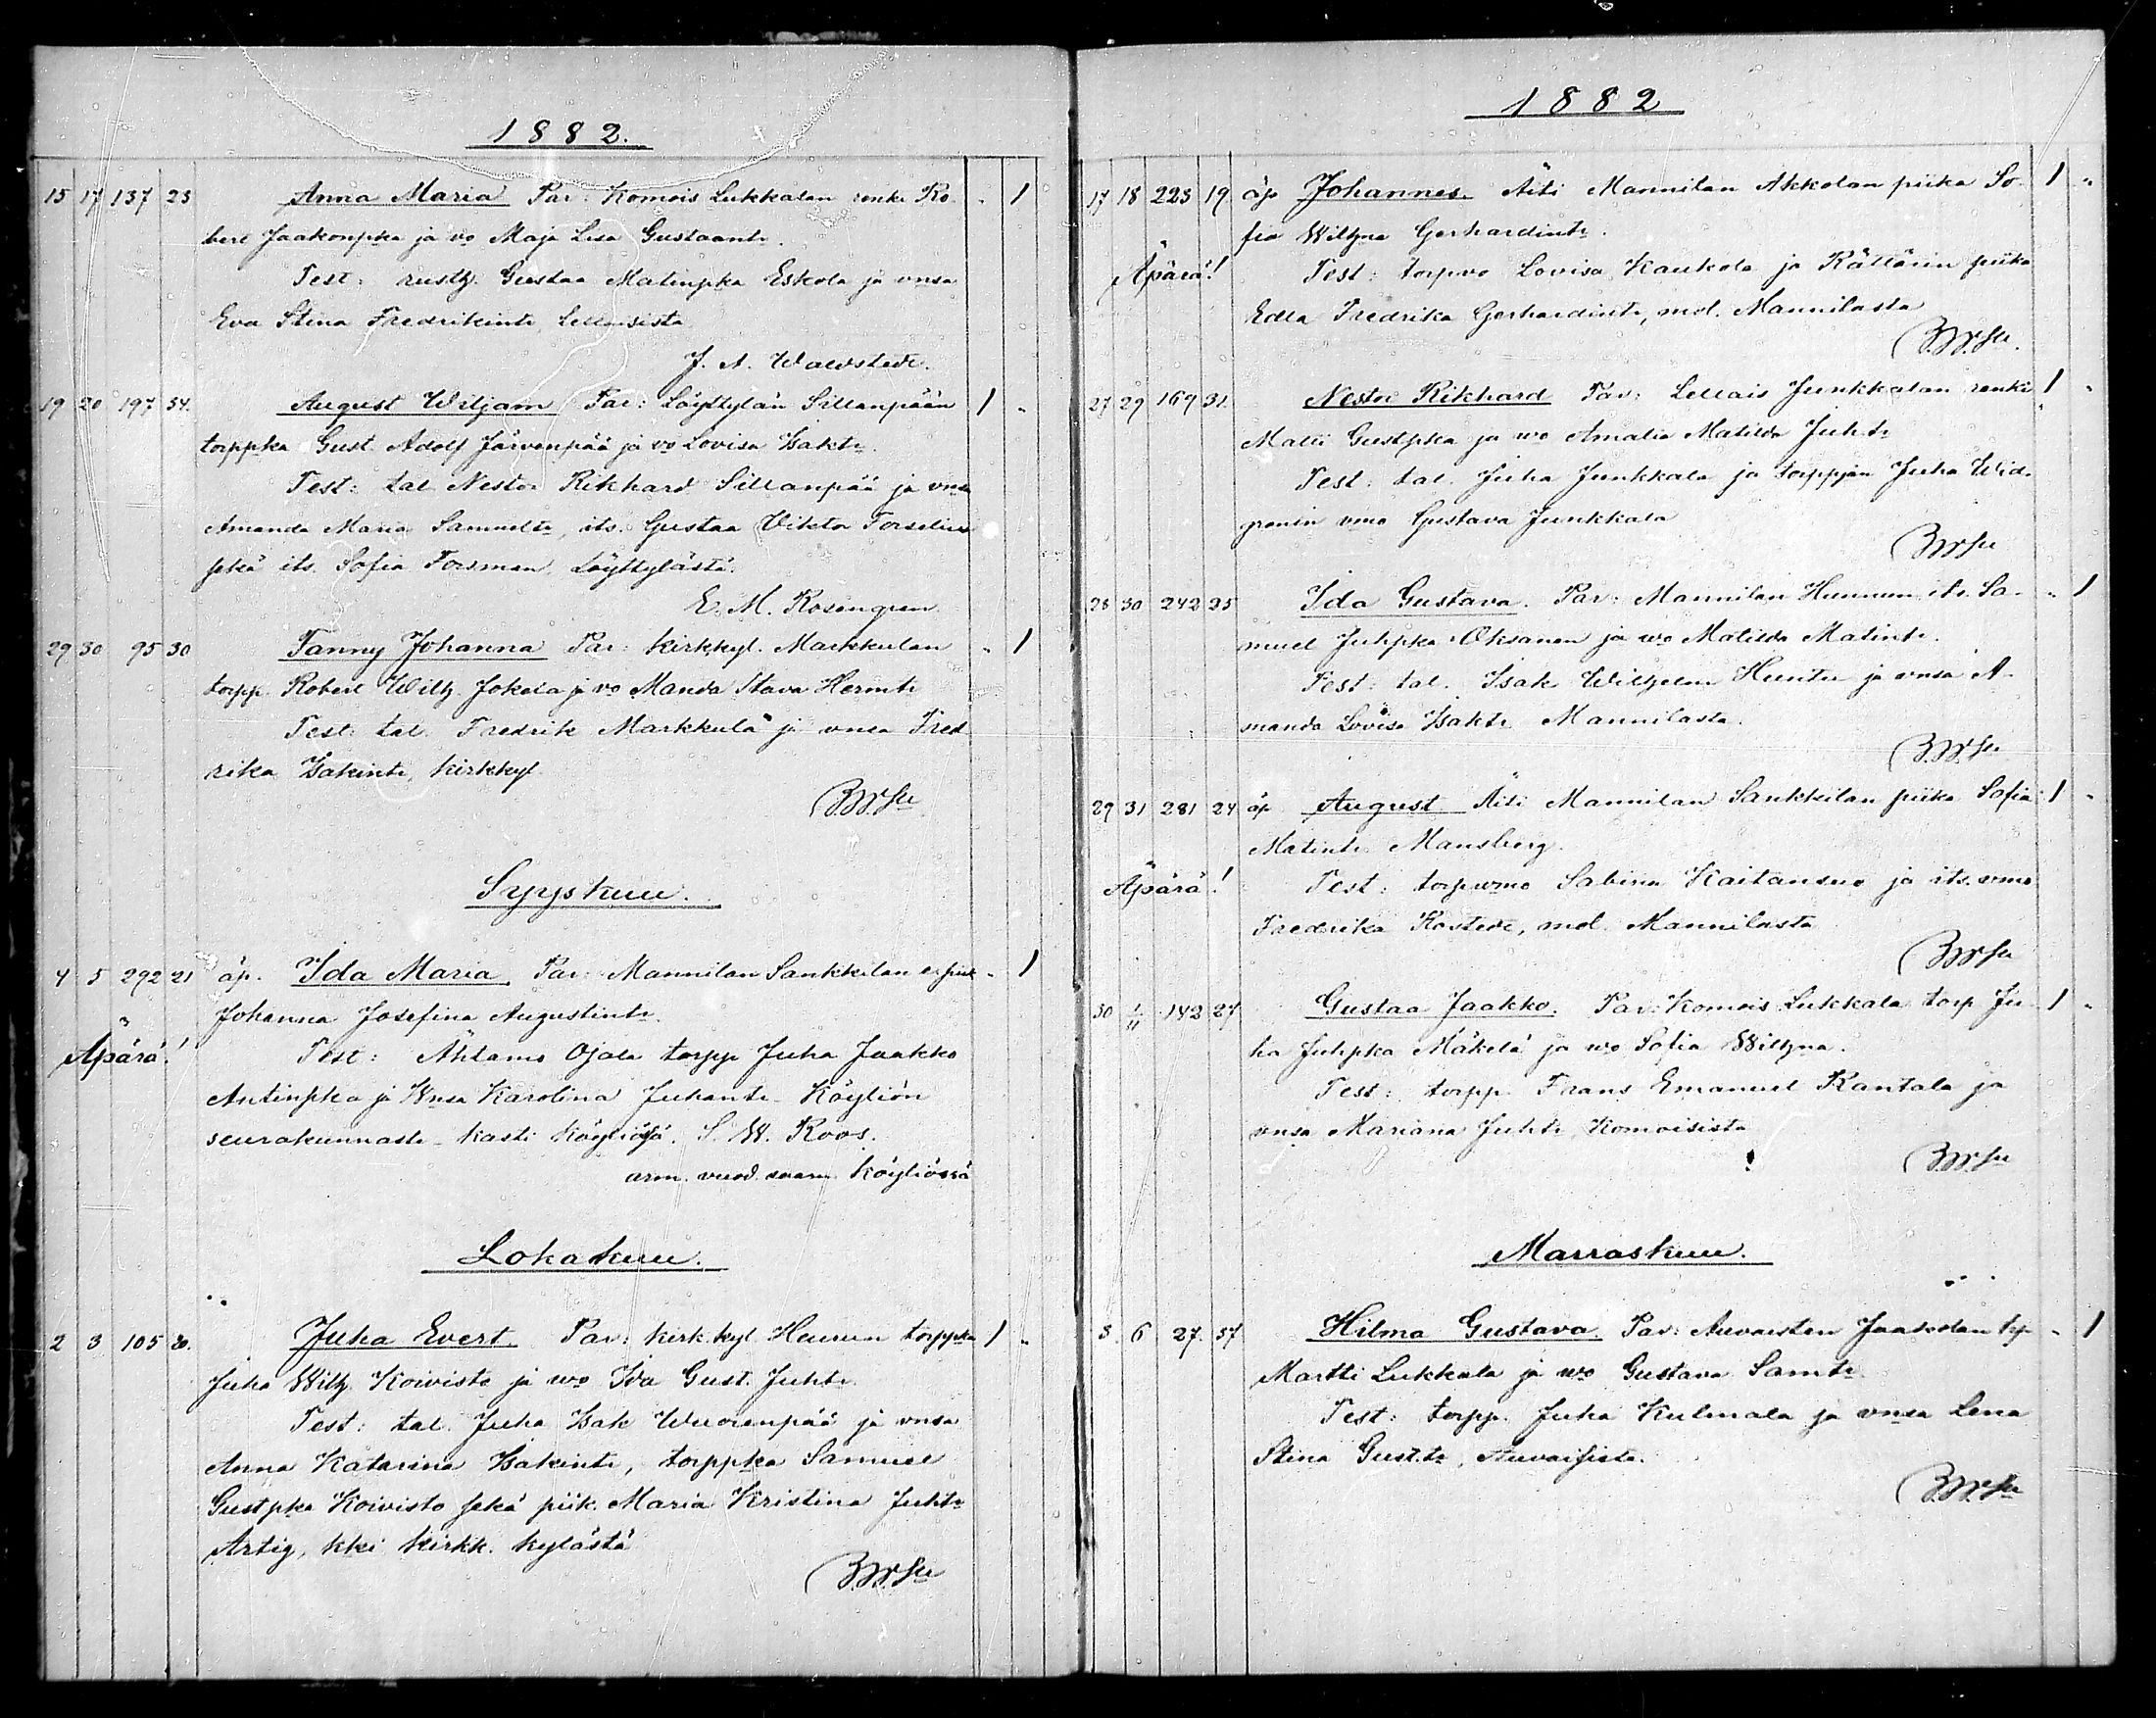 1882.
15 17 137 23 Anna Maria Par: Komois Lukkalan renki Ro- " 1
bert Jaakonpka ja vo Maja Lisa Gustaantr.
Test: rusth. Gustaa Matinpka Eskola ja vnsa
Eva Stina Fredrikintr, Lellaisista
J. A. Waldstedt.
19 20 197 34. August Wiljam Par: Löyttylän Sillanpään 1 "
torppka Gust. Adolf Järvenpää ja vo Lovisa Isaktr.
Test: tal. Nestor Rikhard Sillanpää ja vnsa
Amanda Maria Samueltr, its. Gustaa Viktor Forselius
sekä its. Sofia Forsman, Löyttylästä.
E. M. Rosengren
29 30 95 30 Fanny Johanna Par: kirkkyl. Markkulan " 1
torpp. Robert Wilh. Jokela ja vo Manda Stava Hermtr
Test: tal. Fredrik Markkula ja vnsa Fred
rika Isakintr, kirkkyl.
Syyskuu.
4 5 292 21 äp. Ida Maria, Par: Mannilan Sankkilan " 1
Johanna Josefina Augustintr.
Äpärä! Test: Ähtamo Ojala torpp. Juha Jaakko
Antinpka ja Wnsa Karolina Juhantr Köyliön
seurakunnasta - kasti Köyliösä. S. W. Roos.
arm. vuod. saarn. Köyliössä
Lokakuu.
2 3 105 30. Juha Evert. Par: kirk. kyl. Hunnun torppka 1 "
Juha Wilh. Koivisto ja wo Ida Gust. Juhtr.
Test: tal. Juha Isak Wuorenpää ja vnsa
Anna Katarina Isakintr, torppka Samuel
Gustpka Koivisto sekä piik. Maria Kristina Juhtr
Artig, kki kirkk. kylästä
1882
17 18 223 19 äp Johannes. Äiti Mannilan Akkolan piika So- 1 "
fia Wilhna Gerhardintr.
Äpärä! Test: torp.vo Lovisa Kaukola ja Rättärin piika
Edla Fredrika Gerhardintr, mol. Mannilasta
27 29 169 31. Nestor Rikhard Par: Lellais Junkkalan renki 1 "
Matti Gustpka ja wo Amalia Matilda Juhtr
Test: tal. Juha Junkkala ja torppjän Juha Wid-
gronin vmo Gustava Junkkala
28 30 242 25 Ida Gustava. Par: Mannilan Hunnun its. Sa- " 1
muel Juhpka Oksanen ja wo Matilda Matintr.
Test: tal. Isak Wilhelm Huntu ja vnsa A-
manda Lovisa Isaktr Mannilasta.
29 31 281 24 äp. August Äiti Mannilan Sankkilan piika Sofia 1 "
Matintr Mansberg.
Äpärä! Test: torp.vmo Sabina Kaitansuo ja its. vmo
Fredrika Kostedt, mol. Mannilasta
30 1/11 142 27 Gustaa Jaakko. Par: Komois Lukkala torp Ju- 1 "
ha Juhpka Mäkelä ja wo Sofia Wilhna.
Test: torpp. Frans Emanuel Rantala ja
vnsa Mariana Juhtr, Komoisista
Marraskuu.
5. 6 27. 37 Hilma Gustava. Par: Auvaisten Jaakolan " 1
Martti Lukkala ja wo Gustava Samtr
Test: torpp. Juha Kulmala ja vnsa Lena
Stina Gust.tr, Auvaisista.